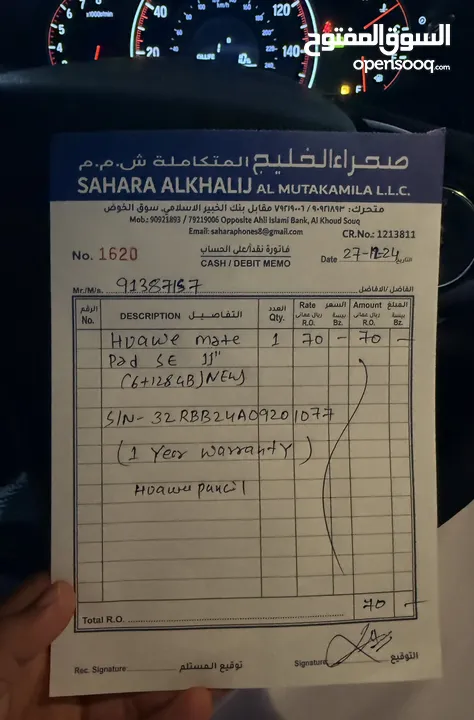 السوق المفتوح
opensooq.com
صحراء الخليج المتكاملة ش.م.م
SAHARA ALKHALIJ AL MUTAKAMILA L.L.C.
متحرك: ٩٠٩٢١٨٩٣ / ٧٩٢١٩٠٠٦ مقابل بنك الخبير الاسلامي، سوق الخوض
Mob.: 90921893 / 79219006 Opposite Ahli Islami Bank, Al Khoud Souq
Email: saharaphones8@gmail.com
CR.No.: 1213811
No. 1620
فاتورة نقدا/على الحساب
CASH / DEBIT MEMO
Date 27-12-24 التاريخ
Mr./M/s. 91387157 الفاضل/الافاضل
الرقم No. DESCRIPTION التفاصيل العدد Qty. Rate السعر Amount المبلغ
ريال عماني R.O. بيسة Bz. ريال عماني R.O. بيسة Bz.
Huawe mate 1 70 - 70 -
Pad SE 11"
(6+128GB) NEW
S/N- 32RBB24A09201077
(1 Year warranty)
Huawe pancil
Total R.O. 70 -
Rec. Signature توقيع المستلم Signature التوقيع